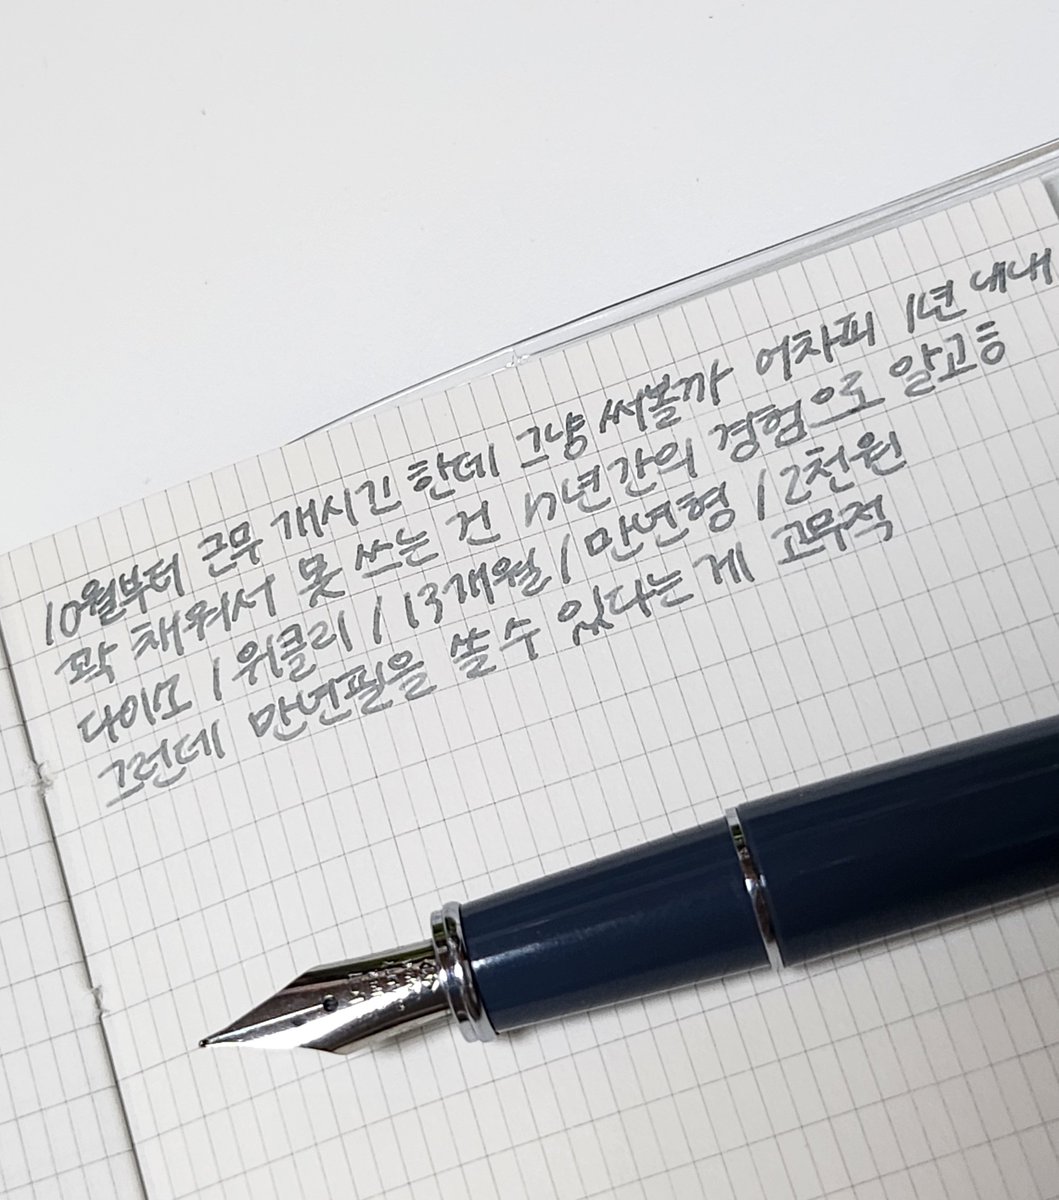 10월부터 근무 개시긴 한데 그냥 써볼까 어차피 1년 내내
꽉 채워서 못 쓰는 건 n년간의 경험으로 알고 有
다이소 / 위클리 / 13개월 / 만년형 / 2천원
그런데 만년필을 쓸 수 있다는 게 고무적